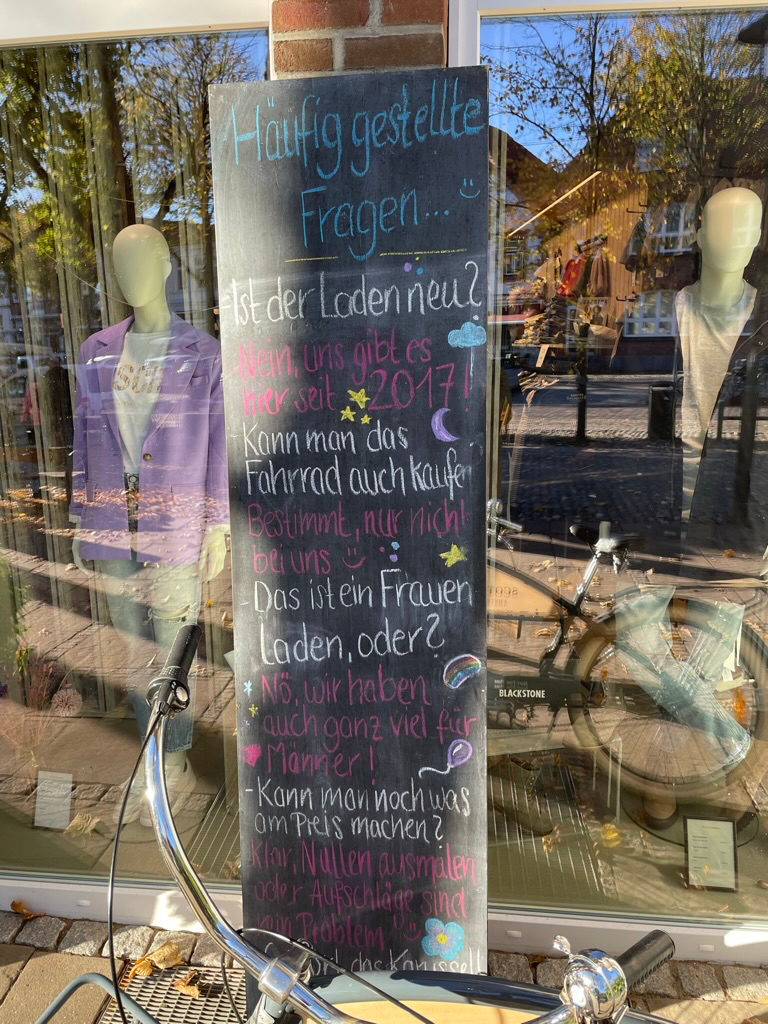 Häufig gestellte
Fragen...
- Ist der Laden neu?
Nein, uns gibt es
hier seit 2017!
- Kann man das
Fahrrad auch kaufen
Bestimmt, nur nicht
bei uns
- Das ist ein Frauen
Laden, oder?
Nö, wir haben
auch ganz viel für
Männer!
- Kann man noch was
am Preis machen?
Klar, Nullen ausmalen
oder Aufschläge sind
kein Problem
das Karussell
BLACKSTONE